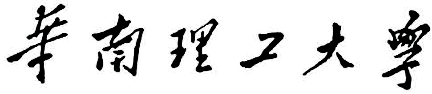 華南理工大學